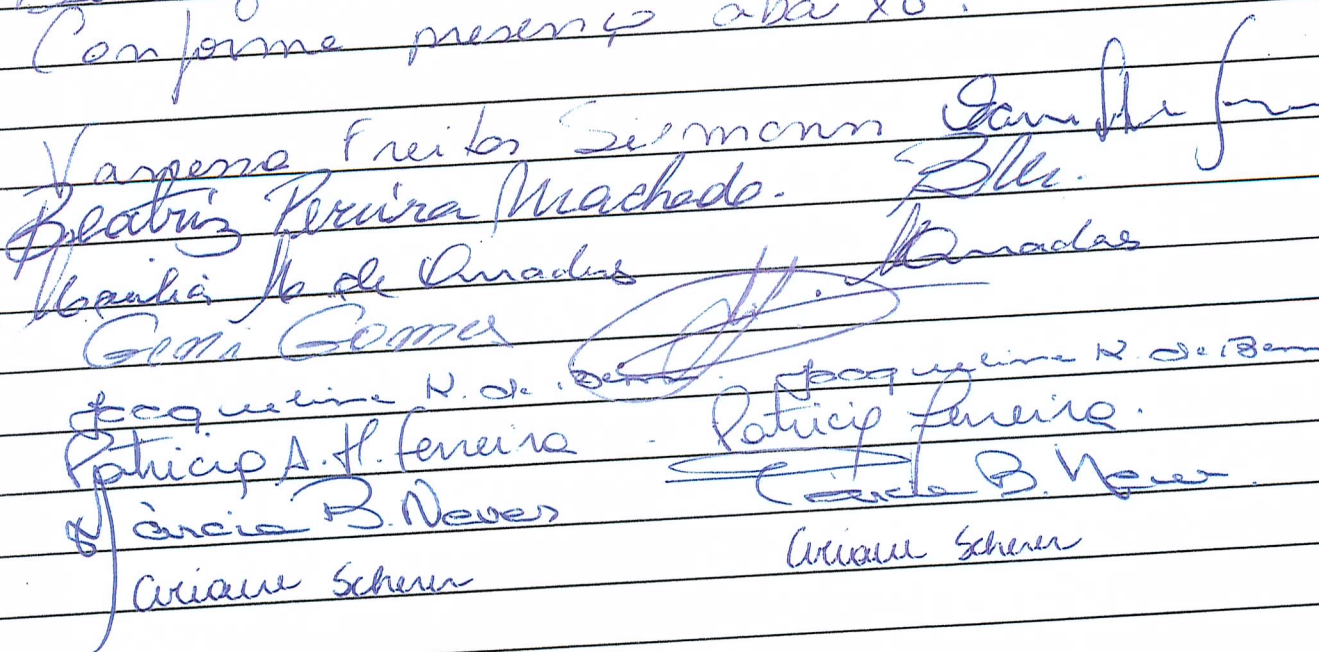 Conforme presença abaixo.
Vanessa Freitas Siemann
Beatriz Pereira Machado. BM.
Marilia M de Quadros Quadros
Geni Gomes
Jacqueline N. de Bem. Jacqueline N. de Bem
Patricia A. H. Ferreira. Patricia Ferreira.
Márcia B. Neves Márcia B. Neves.
Ariane Scherer Ariane Scherer